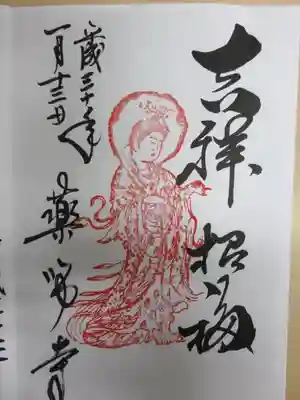 吉祥招福
三十年
一月十三日
藥師寺